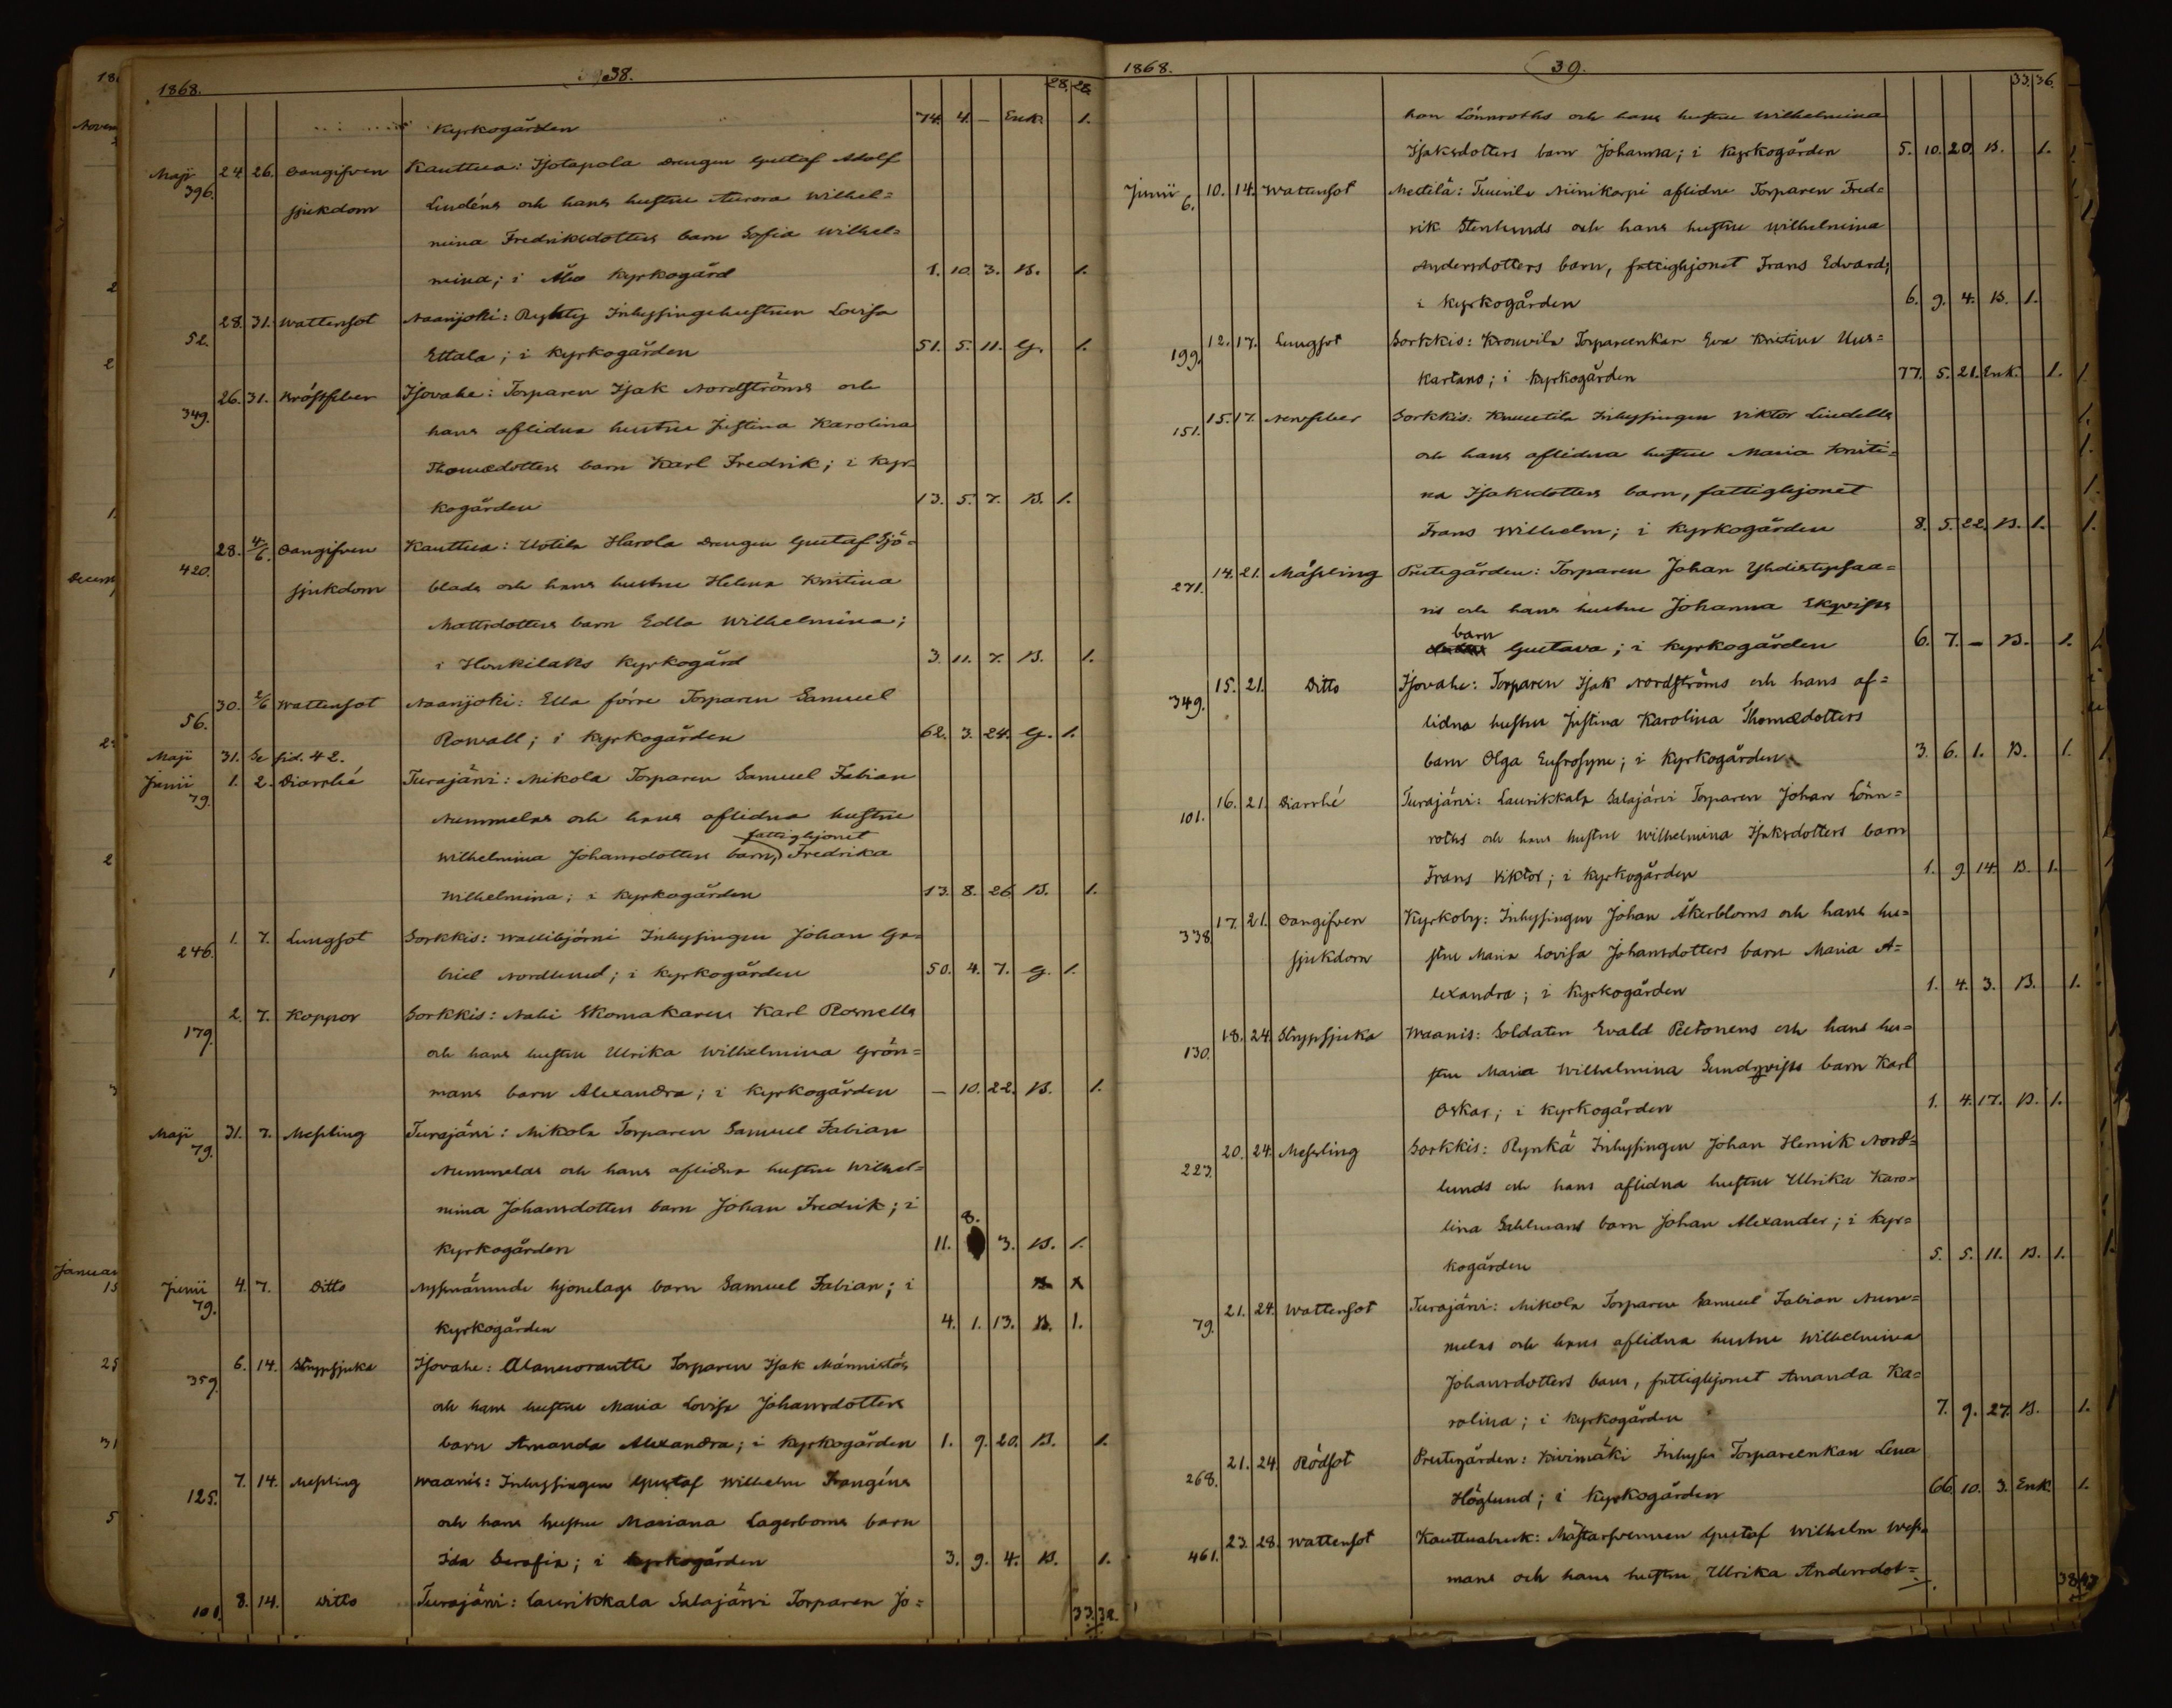 1868. 38. 28. 28.
Kyrkogården 74. 4. – Enk. 1.
Maji 24. 26. Oangifven Kauttua: Isotapola Drengen Gustaf Adolf
396. sjukdom Lindéns och hans hustru Aurora Wilhel=
mina Fredriksdotters barn Sofia Wilhel=
mina; i Åbo Kyrkogård 1. 10. 3. B. 1.
28. 31. Wattensot Naarijoki: Inhysingehustrun Lovisa
52. Ettala; i Kyrkogården 51. 5. 11. G. 1.
26. 31. Bröstfeber Isovahe: Torparen Isak Nordströms och
349. hans aflidna hustru Justina Karolina
Thomædotters barn Karl Fredrik; i Kyr=
kogården 13. 5. 7. B. 1.
28. 4/6. Oangifven Kauttua: Uotila Harola Drengen Gustaf Sjö=
420. sjukdom blads och hans hustru Helena Kristina
Mattsdotters barn Edla Wilhelmina;
i Honkilaks Kyrkogård 3. 11. 7. B. 1.
30. 2/6 Wattensot Naarijoki: Ella förre Torparen Samuel
56. Rowall; i Kyrkogården 62. 3. 24. G. 1.
Maji 31. Se sid. 42.
Junii 1. 2. Diarrhé Turajärvi: Mikola Torparen Samuel Fabian
79. Nummelas och hans aflidna hustru
fattighjonet
Wilhelmina Johansdotters barn, Fredrika
Wilhelmina; i Kyrkogården 13. 8. 26. B. 1.
1. 7. Lungsot Sorkkis: Wallibjörni Inhysingen Johan Ga=
246. briel Nordlund; i Kyrkogården 50. 4. 7. G. 1.
2. 7. Koppor Sorkkis: Nabi Skomakaren Karl Rosnells
179. och hans hustru Ulrika Wilhelmina Grön=
mans barn Alexandra; i Kyrkogården – 10. 22. B. 1.
Maji 31. 7. Messling Turajärvi: Mikola Torparen Samuel Fabian
79. Nummelas och hans aflidna hustru Wilhel=
mina Johansdotters barn Johan Fredrik; i
8.
Kyrkogården 11. 3. B. 1.
Junii 4. 7. Ditto Nyssnämnde hjonelags barn Samuel Fabian; i
79. Kyrkogården 4. 1. 13. B. 1.
6. 14. Strypsjuka Isovahe: Torparen Isak Männistös
359. och hans hustru Maria Lovisa Johansdotters
barn Amanda Alexandra; i Kyrkogården 1. 9. 20. B. 1.
7. 14. Messling Waanis: Inhysingen Gustaf Wilhelm Frangéns
125. och hans hustru Mariana Lagerboms barn
Ida Serafia; i Kyrkogården 3. 9. 4. B. 1.
8. 14. Ditto Turajärvi: Laurikkala Salajärvi Torparen Jo=
101. 33. 32.
1868. 39. 33. 36.
han Lönnroths och hans hustru Wilhelmina
Isaksdotters barn Johanna; i Kyrkogården 5. 10. 20. B. 1.
Junii 10. 14. Wattensot Mestilä: Tuuvila Niinikorpi aflidne Torparen Fred=
6. rik Stenlunds och hans hustru Wilhelmina
Andersdotters barn, fattighjonet Frans Edvard;
i Kyrkogården 6. 9. 4. B. 1.
12. 17. Lungsot Sorkkis: Krouvila Torpareenkan Eva Kristina Uus=
199. kartano; i Kyrkogården 77. 5. 21. Enk. 1.
15. 17. Nervfeber Sorkkis: Knuutila Inhysingen Viktor Lindells
151. och hans aflidna hustru Maria Kristi=
na Isaksdotters barn, fattighjonet
Frans Wilhelm; i Kyrkogården 8. 5. 22. B. 1.
14. 21. Mässling Prestgården: Torparen Johan Yhdistepsaa=
271. ris och hans hustru Johanna Ekqvists
barn
Gustava; i Kyrkogården 6. 7. – B. 1.
15. 21. Ditto Isovahe: Torparen Isak Nordströms och hans af=
349. lidna hustru Justina Karolina Thomædotters
barn Olga Eufrosyne; i Kyrkogården 3. 6. 1. B. 1.
16. 21. Diarrhé Turajärvi: Laurikkala Salajärvi Torparen Johan Lönn=
101. roths och hans hustru Wilhelmina Isaksdotters barn
Frans Viktor; i Kyrkogården 1. 9 14. B. 1.
17. 21. Oangifven Kyrkoby: Inhysingen Johan Åkerbloms och hans hu=
338. sjukdom stru Maria Lovisa Johansdotters barn Maria A=
lexandra; i Kyrkogården 1. 4. 3. B. 1.
18. 24. Strypsjuka Waanis: Soldaten Evald Reetonens och hans hu=
130. stru Maria Wilhelmina Sundqvists barn Karl
Oskar; i Kyrkogården 1. 4. 17. B. 1.
20. 24. Messling Sorkkis: Rynkä Inhysingen Johan Henrik Nord=
223. lunds och hans aflidna hustru Ulrika Karo=
lina Sahlmans barn Johan Alexander; i Kyr=
kogården 5. 5. 11. B. 1.
21. 24. Wattensot Turajärvi: Mikola Torparen Samuel Fabian Num=
79. melas och hans aflidna hustru Wilhelmina
Johansdotters barn, fattighjonet Amanda Ka=
rolina; i Kyrkogården 7. 9. 27. B. 1.
21. 24. Rödsot Prestgården: Kivimäki Inhyses Torpareenkan Lena
268. Höglund; i Kyrkogården 66. 10. 3. Enk. 1.
23. 28. Wattensot Kauttuabruk: Mästarsvennen Gustaf Wilhelm West=
461. mans och hans hustru Ulrika Andersdot=
38. 43